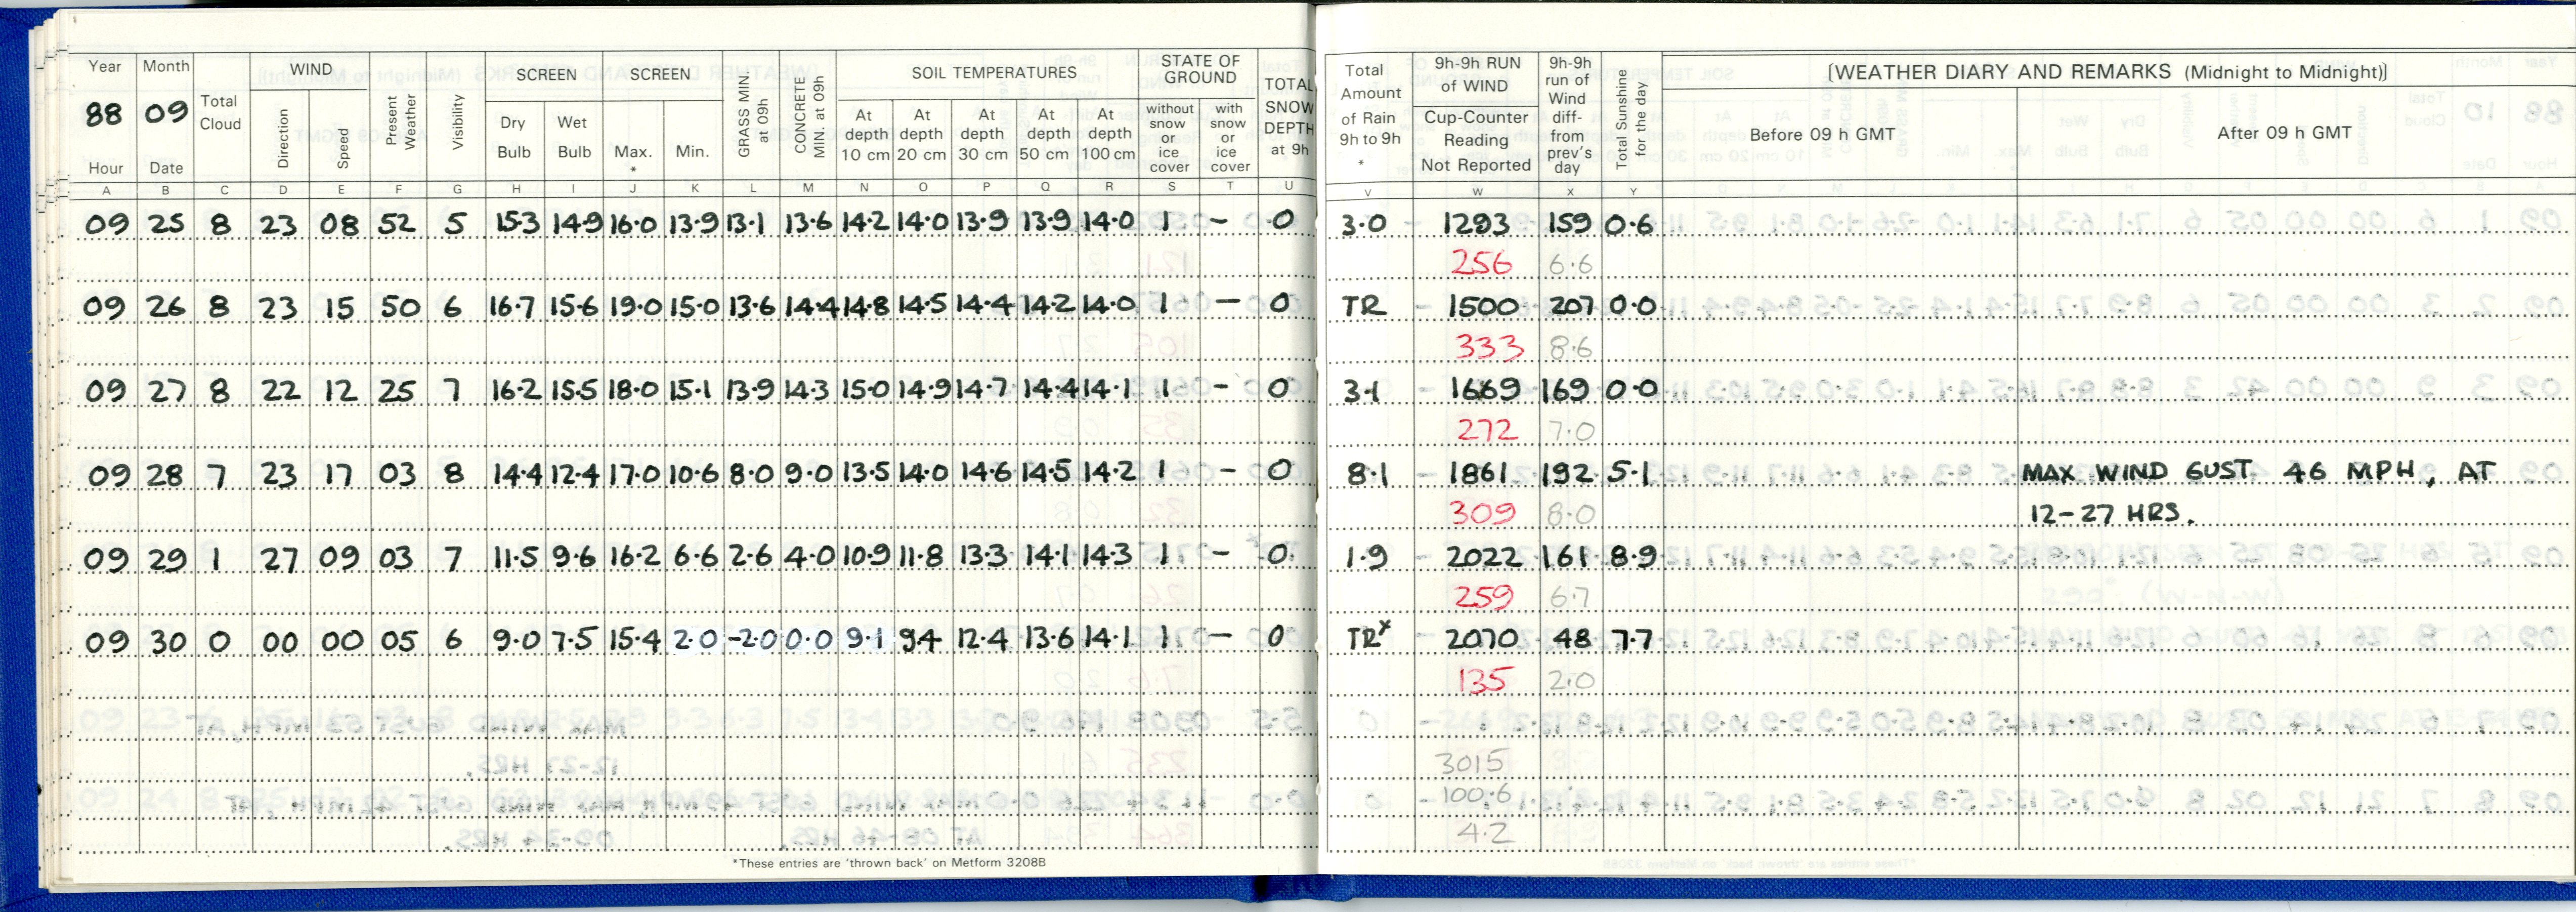 Year Month Total Cloud WIND Present Weather Visibility SCREEN SCREEN GRASS MIN. at 09h CONCRETE MIN. at 09h SOIL TEMPERATURES STATE OF GROUND TOTAL SNOW DEPTH at 9h
88 09 Direction Speed Dry Bulb Wet Bulb Max. * Min. At depth 10 cm At depth 20 cm At depth 30 cm At depth 50 cm At depth 100 cm without snow or ice cover with snow or ice cover
Hour Date
Total Amount of Rain 9h to 9h * 9h-9h RUN of WIND Cup-Counter Reading Not Reported 9h-9h run of Wind diff- from prev's day Total Sunshine for the day [WEATHER DIARY AND REMARKS (Midnight to Midnight)]
Before 09 h GMT After 09 h GMT
A B C D E F G H I J K L M N O P Q R S T U V W X Y
09 25 8 23 08 52 5 15.3 14.9 16.0 13.9 13.1 13.6 14.2 14.0 13.9 13.9 14.0 1 - 0 3.0 1293 159 0.6
256 6.6
09 26 8 23 15 50 6 16.7 15.6 19.0 15.0 13.6 14.4 14.8 14.5 14.4 14.2 14.0 1 - 0 TR 1500 207 0.0
333 8.6
09 27 8 22 12 25 7 16.2 15.5 18.0 15.1 13.9 14.3 15.0 14.9 14.7 14.4 14.1 1 - 0 3.1 1669 169 0.0
272 7.0
09 28 7 23 17 03 8 14.4 12.4 17.0 10.6 8.0 9.0 13.5 14.0 14.6 14.5 14.2 1 - 0 8.1 1861 192 5.1 MAX WIND GUST 46 MPH, AT
309 8.0 12-27 HRS.
09 29 1 27 09 03 7 11.5 9.6 16.2 6.6 2.6 4.0 10.9 11.8 13.3 14.1 14.3 1 - 0 1.9 2022 161 8.9
259 6.7
09 30 0 00 00 05 6 9.0 7.5 15.4 2.0 -2.0 0.0 9.1 9.4 12.4 13.6 14.1 1 - 0 TR* 2070 48 7.7
135 2.0
3015
100.6
4.2
*These entries are 'thrown back' on Metform 3208B